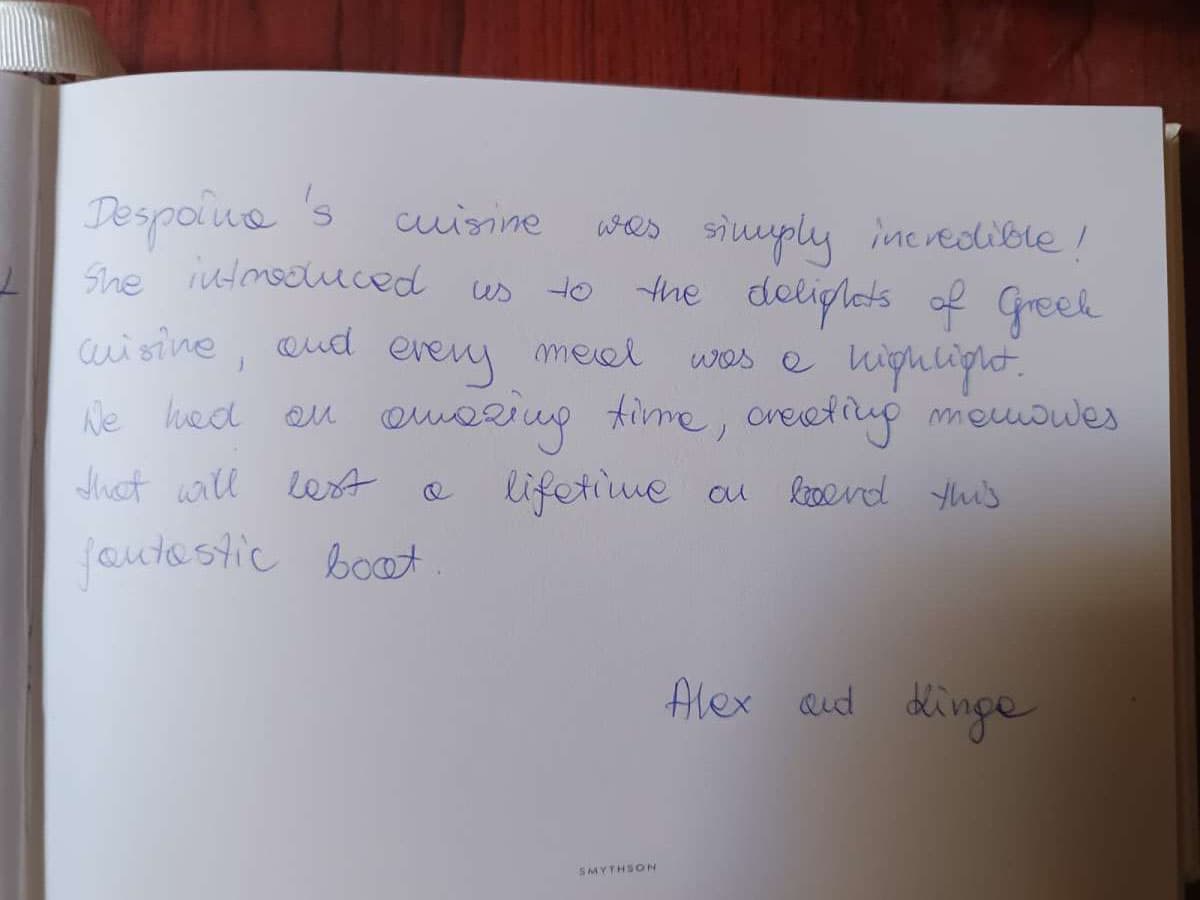 Despoina's cuisine was simply incredible!
She introduced us to the delights of Greek
cuisine, and every meal was a highlight.
We had an amazing time, creating memories
that will last a lifetime on board this
fantastic boat.
Alex and Kinga
SMYTHSON